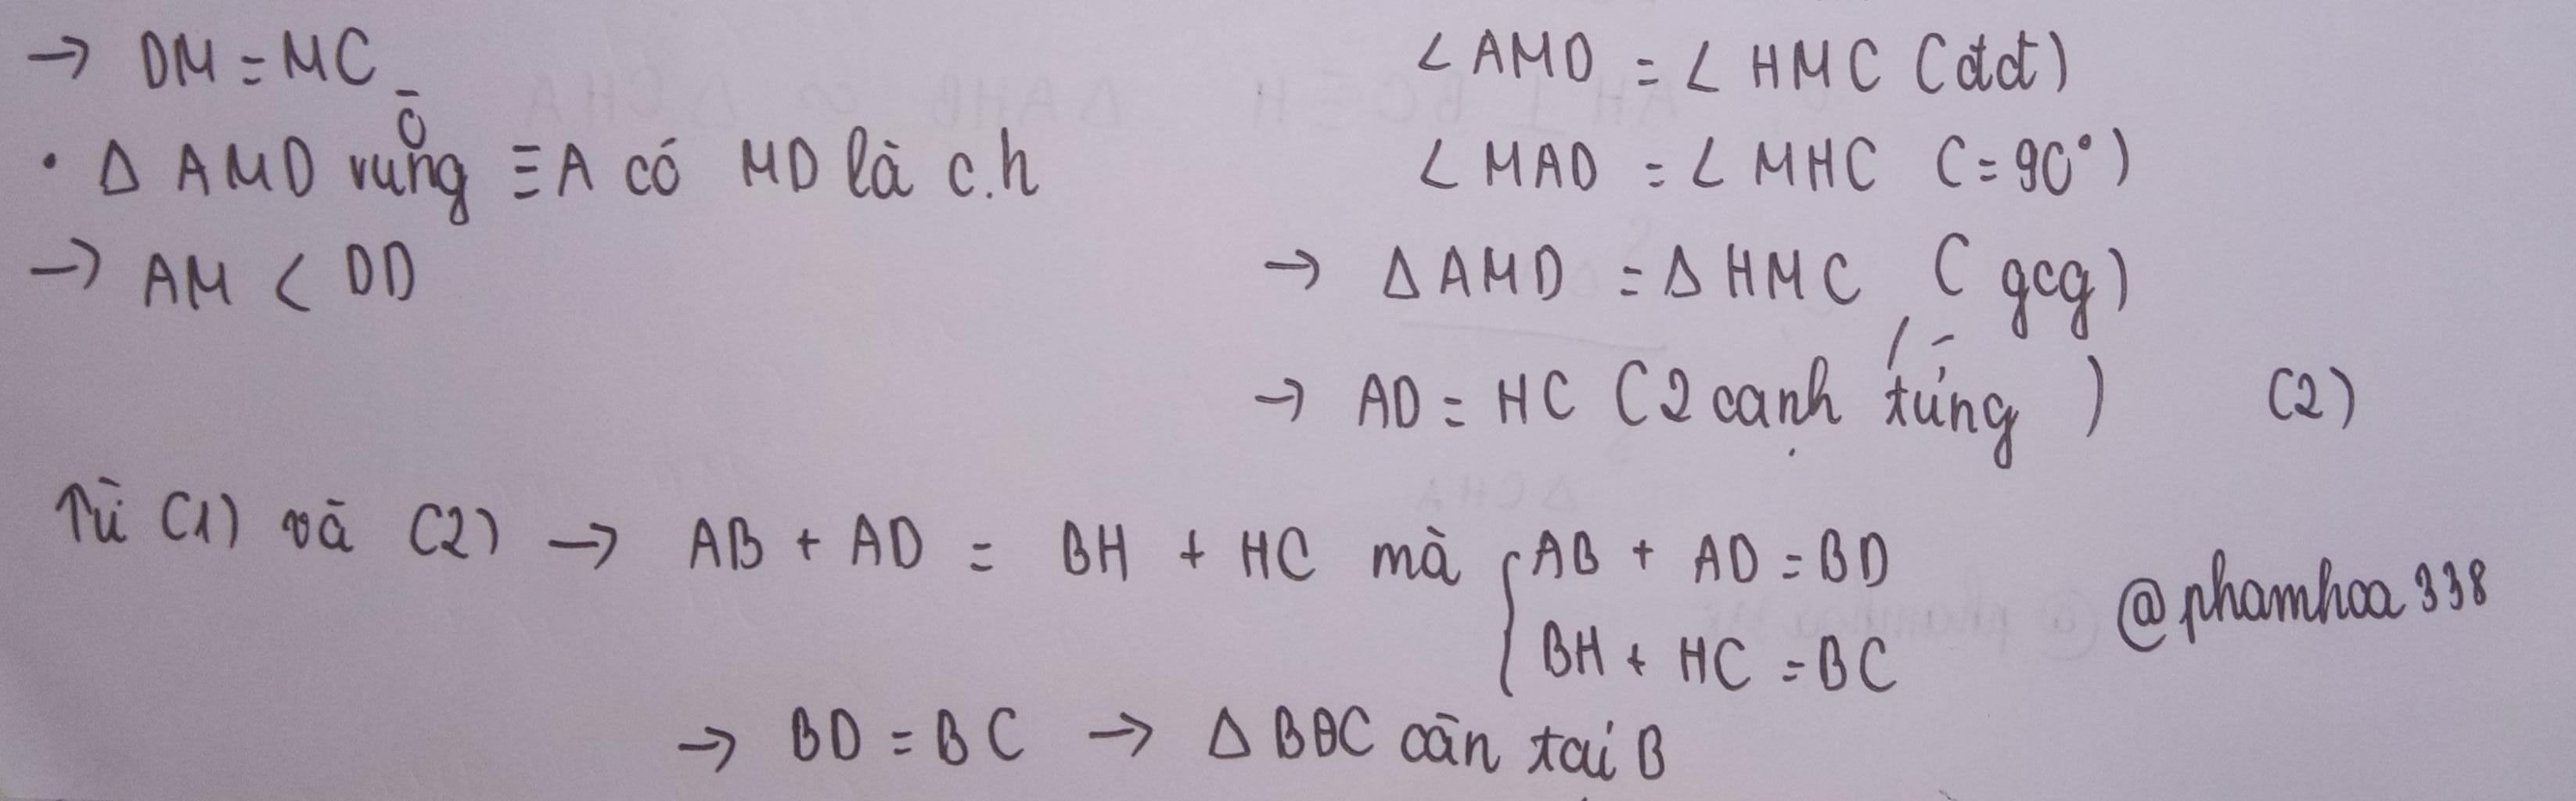 → DM = MC
• Δ AMD vuông ≡ A có MD là c.h
→ AM < DD
∠ AMD = ∠ HMC (đđ)
∠ MAD = ∠ MHC (=90°)
→ Δ AMD = Δ HMC (gcg)
→ AD = HC (2 cạnh t/ứng) (2)
Từ (1) và (2) → AB + AD = BH + HC mà { AB + AD = BD
BH + HC = BC
@phamhoa338
→ BD = BC → Δ BDC cân tai B